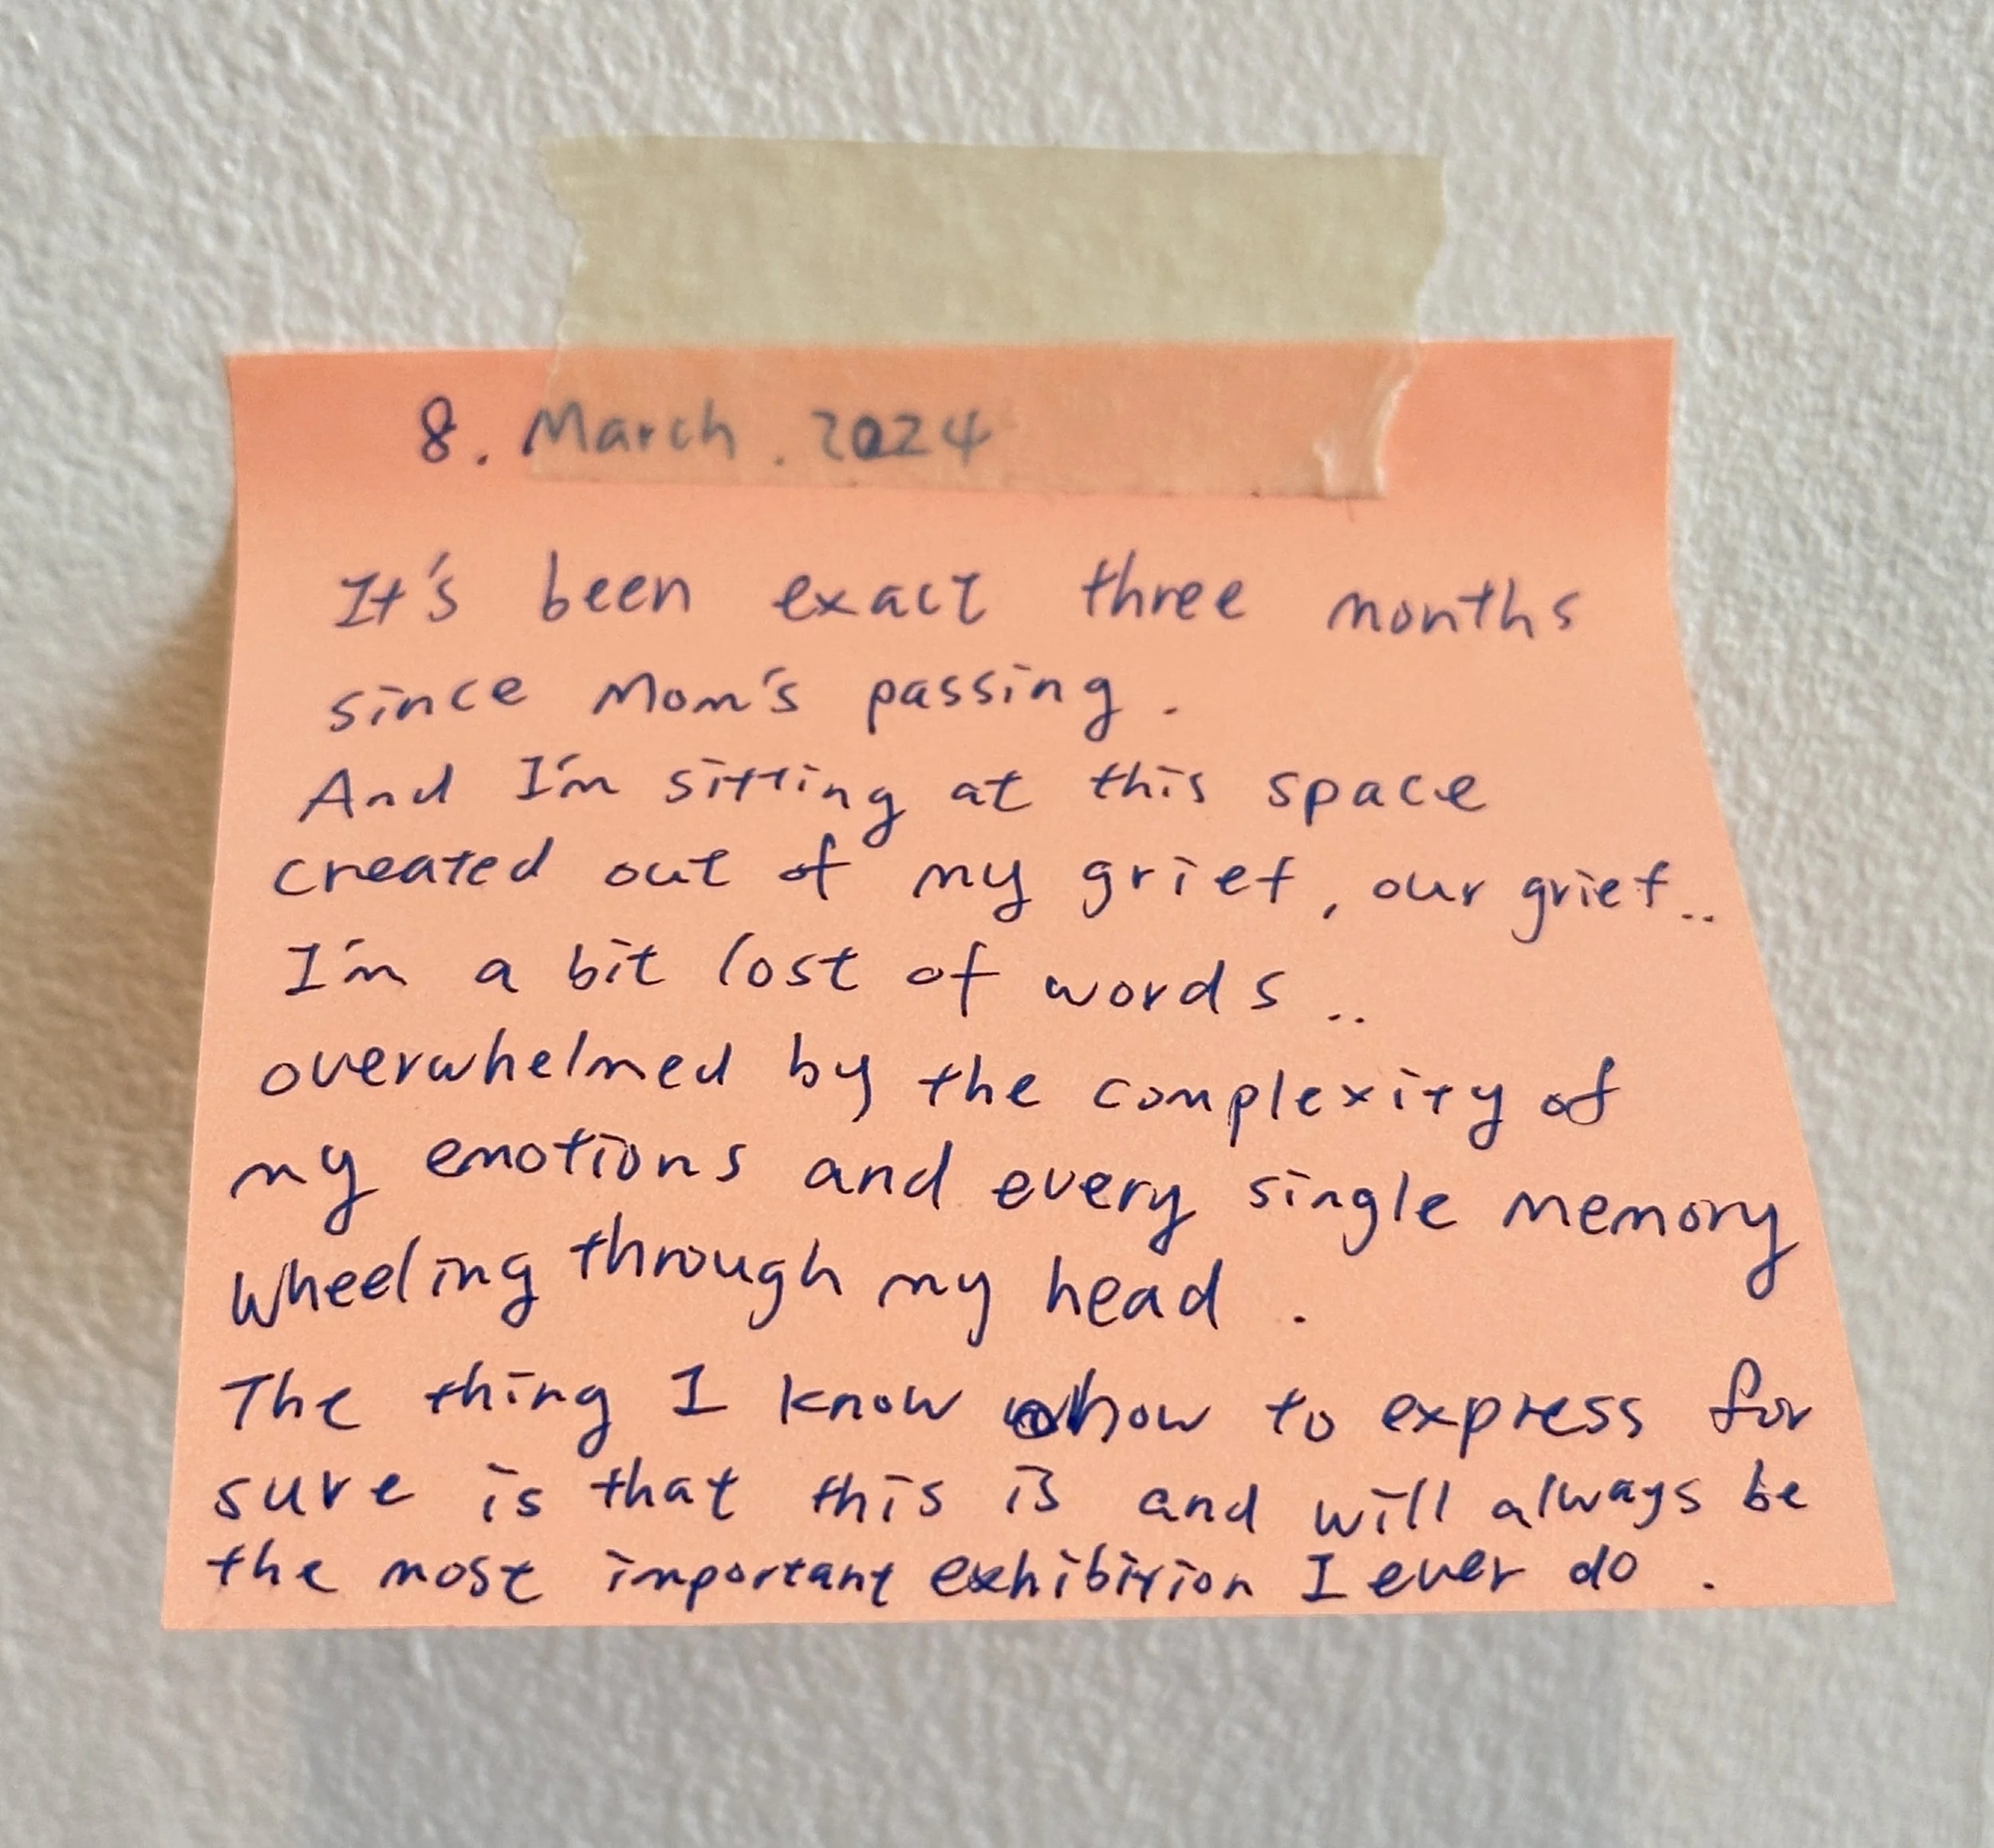 8. March. 2024
It's been exact three months
since Mom's passing.
And I'm sitting at this space
created out of my grief, our grief..
I'm a bit lost of words..
overwhelmed by the complexity of
my emotions and every single memory
wheeling through my head.
The thing I know how to express for
sure is that this is and will always be
the most important exhibition I ever do.